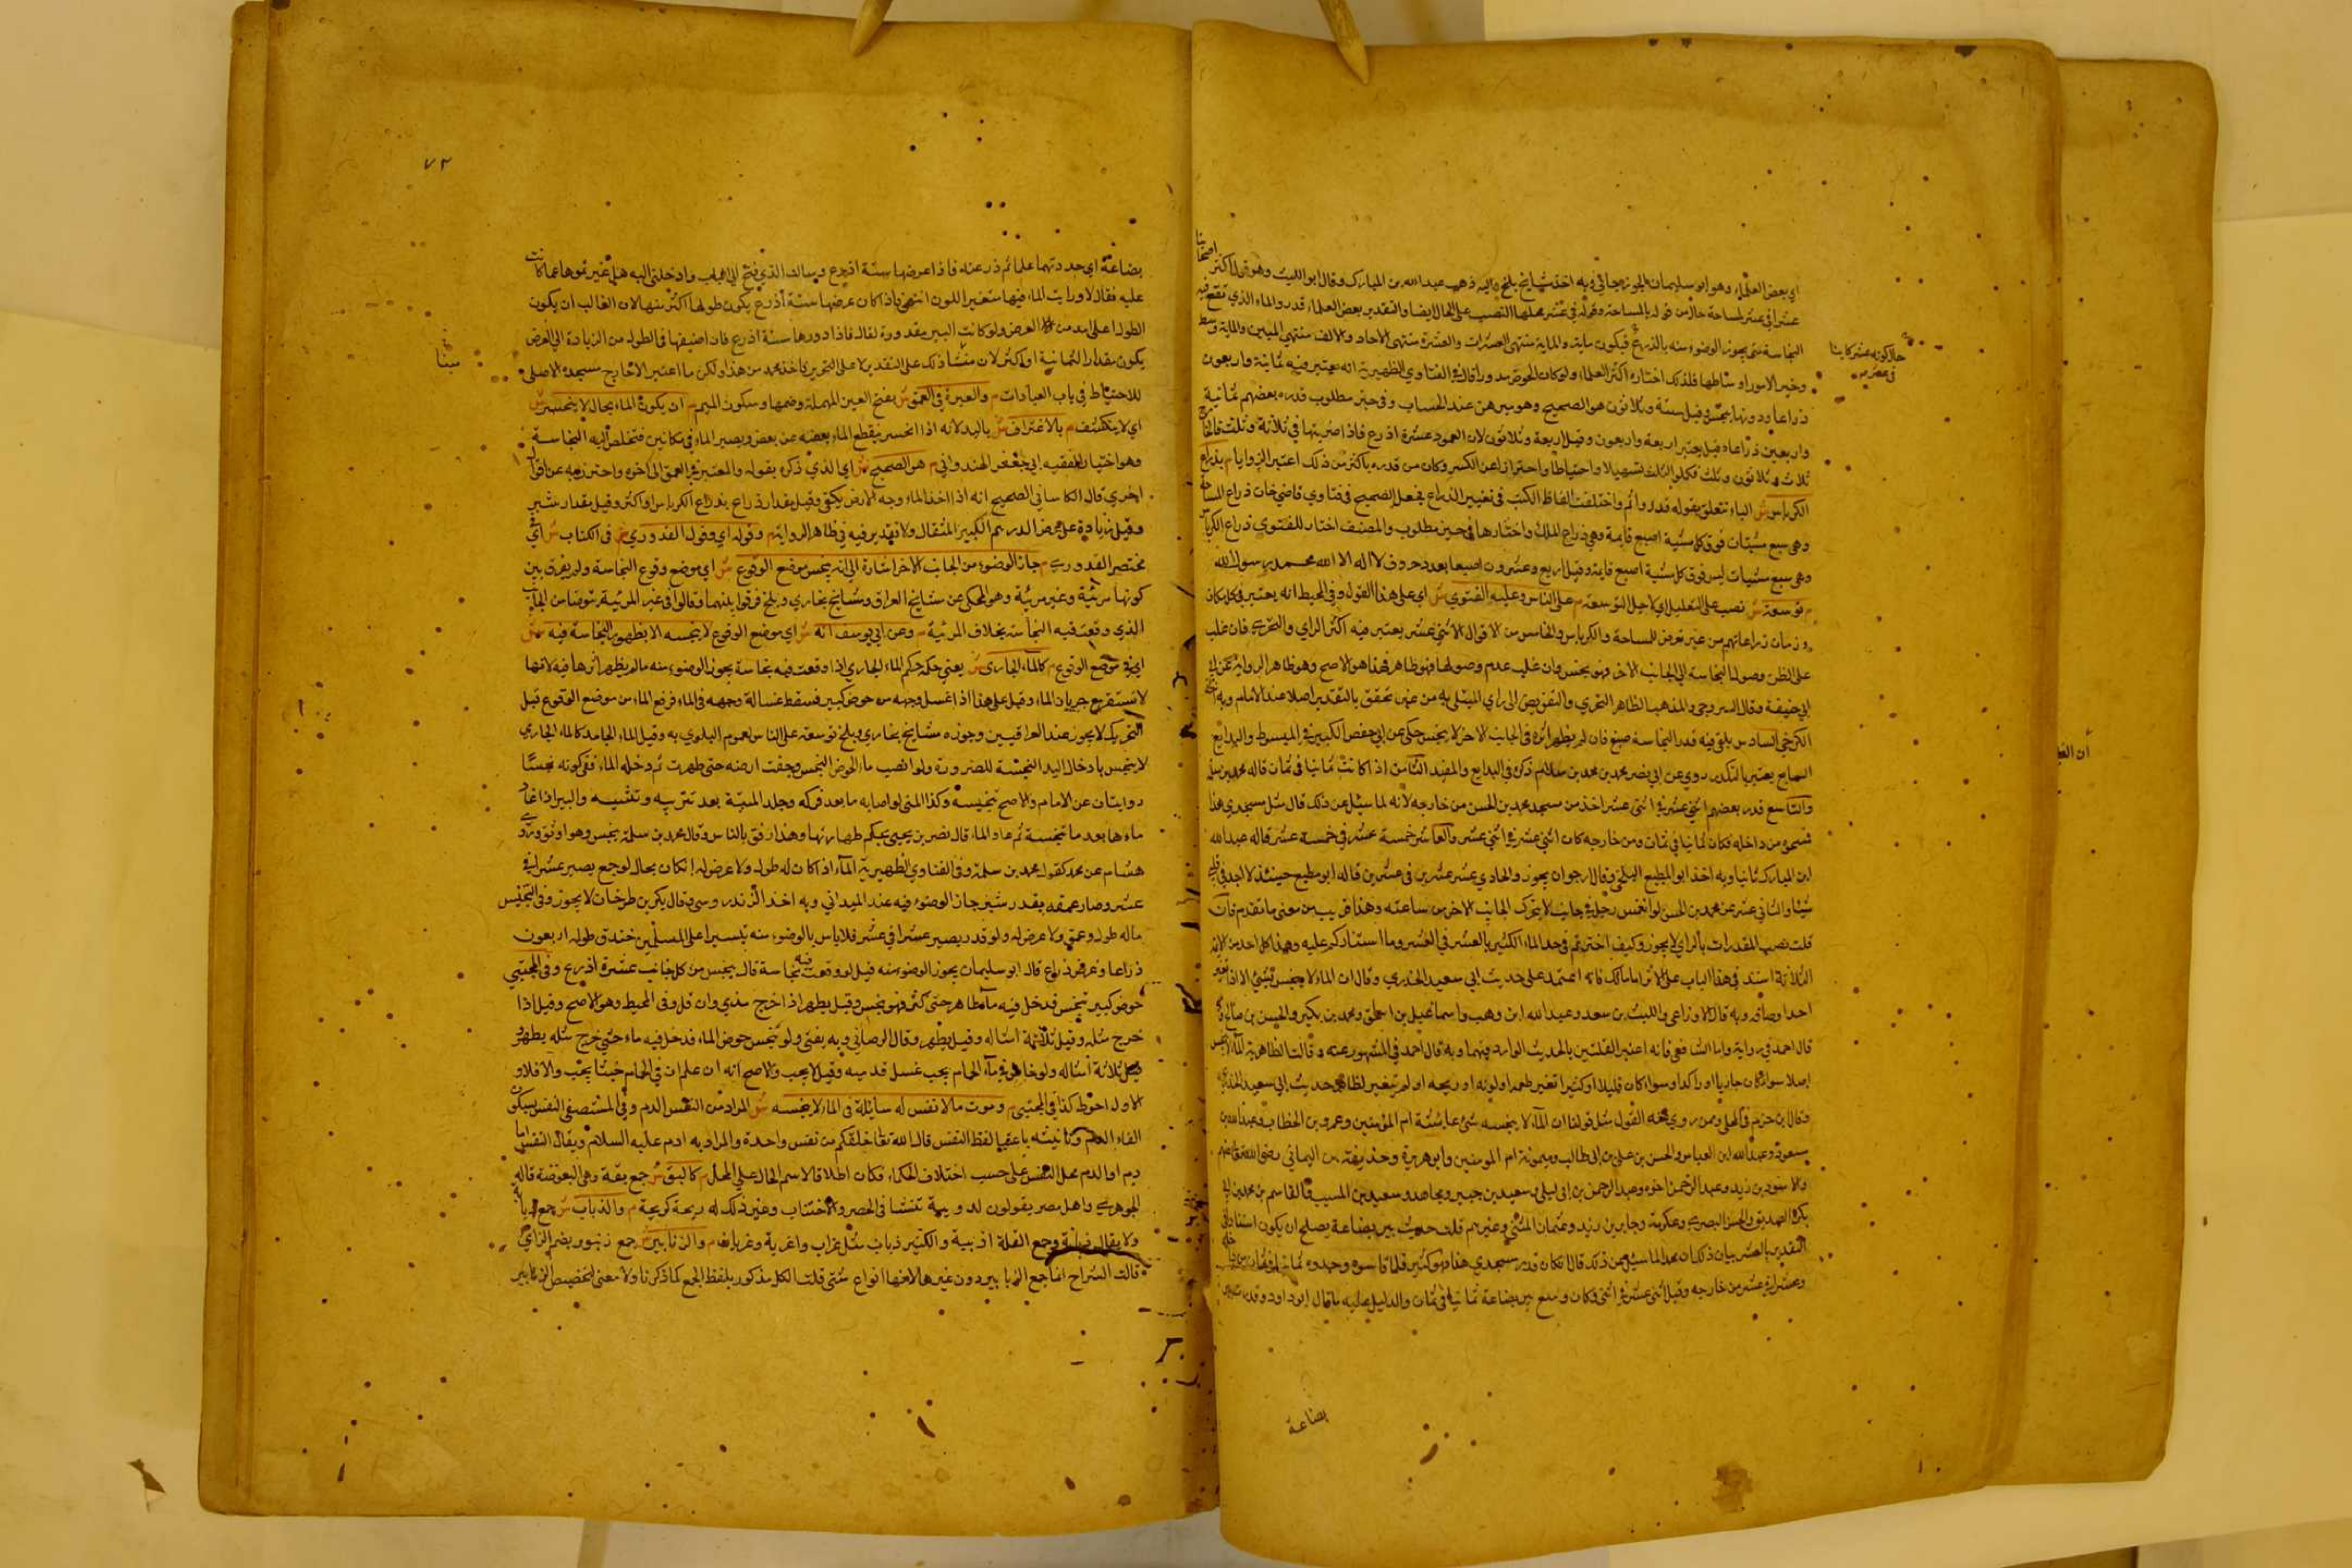 اي بعض العلماء وهو ابو سليمان الجوزجاني وبه اخذ مشايخ بلخ واليه ذهب عبد الله بن المبارك وقال ابو الليث وهو قول اكثر اصحابنا
عشرا في عشر لمساحة حال من قوله بالمساحة وقوله في عشر محلها النصب على الحال ايضا والتقدير بعض العلماء قدر والماء الذي تقع فيه
النجاسة يجوز الوضوء منه بالذراع فيكون ماية والماية منتهى العشرات والعشرة منتهى الاحاد والالف منتهى الميين والماية وسط
وخير الامور اوساطها فلذلك اختاره اكثر العلماء ولو كان الحوض مدورا قال في الفتاوي الظهيرية انه يعتبر فيه ثمانية واربعون
ذراعا ودونها ينجس وقيل ستة وثلاثون هو الصحيح وهو مبرهن عند الحساب وفي حيز مطلوب قدره بعضهم ثمانية
واربعين ذراعا وقيل يعتبر اربعة واربعون وقيل اربعة وثلاثون لان العمود عشرة اذرع فاذا ضربتها في ثلاثة وثلث
ثلاث وثلاثون وثلث فكلوا الثلث تسهيلا واحتياطا واحترازا عن الكسر وكان من قدره باكثر من ذلك اعتبر الزوايا م بذراع
الكرباس ش الباء تتعلق بقوله قدروا ثم واختلفت الفاظ الكتب في تعيين الذراع فجعل الصحيح في فتاوي قاضي خان ذراع المساحة
وهي سبع مشتات فوق كل ستية اصبع قايمة وهي ذراع الملك واختارها في حيز مطلوب والمصنف اختار للفتوي ذراع الكرباس
وهي سبع ستيات ليس فوق كل ستية اصبع قايمة وقيل اربع وعشرون اصبعا بعدد حروف لا اله الا الله محمد رسول الله
م توسعة ش نصب على التعليل اي لاجل التوسعة م على الناس وعليه الفتوي ش اي على هذا القول وفي المحيط انه يعتبر في كل مكان
وزمان ذراعاتهم من غير تعرض للمساحة والكرباس والخامس من الاقوال الاثني عشر يعتبر فيه اكثر الراي والتحري فان غلب
على الظن وصول النجاسة الى الجانب الاخر فهو نجس وان غلب عدم وصولها فهو طاهر فهذا هو الاصح وهو ظاهر الرواية عن
ابي حنيفة وقال السروجي والمذهب الظاهر التحري والتفويض الى راي المبتلى به من غير تحقق بالتقدير اصلا عند الامام وبه اخذ
الكرخي السادس يلقى فيه قدر النجاسة صبغ فان لم يظهر اثره في الجانب الاخر لا ينجس حكي عن ابي حفص الكبير في المبسوط والبدايع
السابع يعتبر بالتكدر روي عن ابي نصر محمد بن محمد بن سلام ذكره في البدايع والمفيد الثامن اذا كانت ثمانيا في ثمان قاله محمد بن سلمة
والتاسع قدره بعضهم اثني عشر في اثني عشر اخذ من مسجد محمد بن الحسن من خارجه لانه لما سئل عن ذلك قال مثل مسجدي هذا
فمسح من داخله فكان ثمانيا في ثمان ومن خارجه كان اثني عشر في اثني عشر والعاشر خمسة عشر في خمسة عشر قاله عبد الله
ابن المبارك ثانيا وبه اخذ ابو المطيع البلخي وقال ارجو ان يجوز والحادي عشر عشرين في عشرين قاله ابو مطيع حينئذ لا اجد في قلبي
شيئا والثاني عشر عن محمد بن الحسن لو انغمس رجل في جانب لا يتحرك الجانب الاخر من ساعته وهذا قريب من معنى ما تقدم فان
قلت نصب المقدرات بالراي لا يجوز وكيف اخترتم في حد الماء الكثير بالعشر في العشر وما استنادكم عليه وهذا كل احد من الايمة
الثلاثة استند في هذا الباب على الاثر اما مالك فانه اعتمد على حديث ابي سعيد الخدري وقال ان الماء لا ينجس بشيء الا اذا تغير
احد اوصافه وبه قال الاوزاعي والليث بن سعد وعبد الله ابن وهب واسماعيل بن اسحاق ومحمد بن بكير والحسن بن صالح
قال احمد في رواية واما الشافعي فانه اعتبر القلتين بالحديث الوارد فيهما وبه قال احمد في المشهور عنه وقالت الظاهرية الماء لا ينجس
اصلا سواء كان جاريا او راكدا وسواء كان قليلا او كثيرا تغير طعمه او لونه او ريحه او لم يتغير لظاهر حديث ابي سعيد الخدري
وقال ابن حزم في المحلى وممن روي عنه القول مثل قولنا ان الماء لا ينجسه شيء عايشة ام المؤمنين وعمر بن الخطاب وعبد الله بن
مسعود وعبد الله ابن العباس والحسن بن علي بن ابي طالب وميمونة ام المومنين وابو هريرة وحذيفة بن اليماني رضي الله تعالى عنهم
والاسود بن زيد وعبد الرحمن اخوه وعبد الرحمن بن ابي ليلى وسعيد بن جبير ومجاهد وسعيد بن المسيب والقاسم بن محمد بن ابي
بكر الصديق والحسن البصري وعكرمة وجابر بن زيد وعثمان البتي وغيرهم قلت حديث بير بضاعة يصلح ان يكون استنادا في
التقدير بالعشر بيان ذلك ان محمدا لما سئل عن ذلك قال ان كان قدر مسجدي هذا فهو كثير فلما قاسوه وجدوه ثمانيا في ثمان من داخله
وعشرا في عشر من خارجه وقيل اثني عشر في اثني وكان وسع بير بضاعة ثمانيا في ثمان والدليل عليه ما قال ابو داود وقدرت بير
بضاعة
حال كونه عشرا كاينا
في عشر
٧٢
بضاعة اي مددتهما عليها ثم ذرعته فاذا عرضها ستة اذرع وسالت الذي فتح لي الباب وادخلني اليه هل غير بنوها عما كانت
عليه فقال لا ورايت الماء فيها متغير اللون انتهى فاذا كان عرضها ستة أذرع يكون طولها اكثر منها لان الغالب ان يكون
الطول امد من العرض ولو كانت البير مقدورة لقال فاذا دورها ستة اذرع فان اضيفها في الطول من الزيادة الى العرض
يكون مقدار الثمانية او اكثر لان مبنى ذلك على التقدير لا على التحرير فاخذ محمد من هذا ولكن ما اعتبر الا خارج مسجده الاصلي
للاحتياط في باب العبادات م والعبرة في العمق ش بفتح العين المهملة وضمها وسكون الميم م ان يكون الماء بحال لا ينحسر ش
اي لا ينكشف م بالاغتراف ش باليد لانه اذا انحسر ينقطع الماء بعضه عن بعض ويصير الماء في مكانين فتخلص اليه النجاسة
وهو اختيار الفقيه ابي جعفر الهندواني م هو الصحيح ش اي الذي ذكره بقوله والمعتبر في العمق الى اخره واحترز به عن اقوال
اخري قال الكاساني الصحيح انه اذا اخذ الماء وجه الارض يكفي وقيل مقدار ذراع بذراع الكرباس او اكثر وقيل مقدار شبر
وقيل بزيادة على عرض الدرهم الكبير المثقال ولا تقدير فيه في ظاهر الرواية م وقوله اي وقول القدوري م في الكتاب ش اي في
مختصر القدوري م جاز الوضوء من الجانب الاخر اشارة الى انه ينجس موضع الوقوع ش اي موضع وقوع النجاسة ولم يفرق بين
كونها مرئية وغير مرئية وهو المحكي عن مشايخ العراق ومشايخ بخاري وبلخ فرقوا بينهما وقالوا في غير المرئية يتوضا من الجانب
الذي وقعت فيه النجاسة بخلاف المرئية م وعن ابي يوسف انه ش اي موضع الوقوع لا ينجسه الا بظهور النجاسة فيه ش
اي في موضع الوقوع م كالماء الجاري ش يعني حكمه حكم الماء الجاري اذا وقعت فيه نجاسة يجوز الوضوء منه ما لم يظهر اثرها فيه لانها
لا تستقر مع جريان الماء وقيل على هذا اذا غسل وجهه من حوض كبير فسقط غسالة وجهه في الماء فرفع الماء من موضع الوقوع قبل
التحريك لا يجوز عند العراقيين وجوزه مشايخ بخاري وبلخ توسعة على الناس لعموم البلوي به وقيل الماء الجامد كالماء الجاري
لا ينجس بادخال اليد النجسة للضرورة ولو انصب ماء الحوض النجس وجفت ارضه حتى طهرت ثم دخله الماء ففي كونه نجسا
روايتان عن الامام والاصح تنجيسه وكذا المني لو اصابه ما بعد فركه وجلد الميتة بعد تتريبه وتشميسه والبير اذا غار
ماءها بعد ما تنجست ثم عاد الماء قال نصر بن يحيى يحكم طهارتها وهذا رفق بالناس وقال محمد بن سلمة ينجس وهو اوثق وروي
هشام عن محمد كقول محمد بن سلمة وفي الفتاوي الظهيرية الماء اذا كان له طول ولا عرض له ان كان بحال لو جمع يصير عشرا في
عشر وصار عمقه بقدر شبر جاز الوضوء فيه عند الميداني وبه اخذ الزندروسي وقال بكر بن طرخان لا يجوز وفي التجنيس
ماله طول وعمق ولا عرض له ولو قدر يصير عشرا في عشر فلا باس بالوضوء منه تيسيرا على المسلمين خندق طوله اربعون
ذراعا وعرض ذراع قال ابو سليمان يجوز الوضوء منه قيل لو وقعت فيه نجاسة قال ينجس من كل جانب عشرة اذرع وفي المجتبي
حوض كبير تنجس فدخل فيه ماء طاهر حتى كثر فهو نجس وقيل يطهر اذا خرج شيء وان قل وفي المحيط وهو الاصح وقيل اذا
خرج مثله وقيل ثلاثة امثاله وقيل يطهر وقال الرصاني وبه يفتى ولو تنجس حوض الماء فدخل فيه ماء حتى خرج مثله يطهر
وقيل ثلاثة امثاله ولو خاض في ماء الحمام يجب غسل قدميه وقيل لا يجب والاصح انه ان علم ان في الحمام خبثا يجب والا فلا و
الاول احوط كذا في المجتبى م وموت ما لا نفس له سائلة في الماء لا ينجسه ش المراد من النفس الدم وفي المستصفى النفس بسكون
الفاء الدم وتانيثه باعتبار لفظ النفس قال الله تعالى خلقكم من نفس واحدة والمراد به ادم عليه السلام ويقال النفس اما
دم او الدم محل النفس على حسب اختلاف الحكماء فكان اطلاقا لاسم الحال على المحل م كالبق ش جمع بقة وهي البعوضة قاله
الجوهري واهل مصر يقولون لدويبة تنشا في الحصر والاخشاب وغير ذلك له ريحة كريهة م والذباب ش جمع
ولا يقال ذبانة وجمع القلة اذبية والكثير ذبان مثل غراب واغربة وغربان م والزنابير ش جمع زنبور بضم الزاي
قالت الشراح انما جمع الزنابير دون غيرها لانها انواع شتى قلت الكل مذكور بلفظ الجمع كما ذكرنا ولا معنى لتخصيص الزنابير